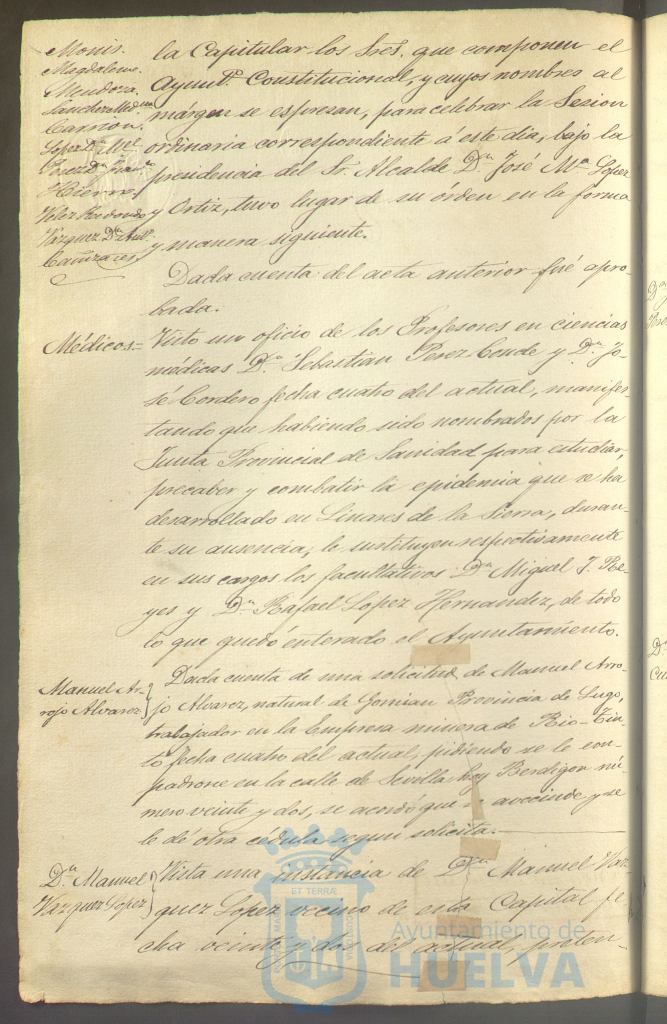 Monis.
Magdalena.
Mendoza.
Sanchez Medina
Carrion.
Lopez Dn. Ml.
Perez Dn. Franco
Hierro.
Velez Redondo
Vazquez Dn. Anto.
Cañizares
la Capitular los Sres. que componen el
Ayunto. Constitucional, y cuyos nombres al
márgen se espresan, para celebrar la Sesion
ordinaria correspondiente á este dia, bajo la
presidencia del Sr. Alcalde Dn. José Ma. Lopez
y Ortiz, tuvo lugar de su órden en la forma
y manera siguiente.
Dada cuenta del acta anterior fué apro-
bada.
Médicos=
Visto un oficio de los Profesores en ciencias
médicas Dn. Sebastian Perez Conde y Dn. Jo-
sé Cordero fecha cuatro del actual, manifes-
tando que habiendo sido nombrados por la
Junta Provincial de Sanidad para estudiar,
precaber y combatir la epidemia que se ha
desarrollado en Linares de la Sierra, duran-
te su ausencia, le sustituyen respectivamente
en sus cargos los facultativos Dn. Miguel J. Re-
yes y Dn. Rafael Lopez Hernandez, de todo
lo que quedó enterado el Ayuntamiento.
Manuel Ar-
rojo Alvarez
Dada cuenta de una solicitud de Manuel Arro-
jo Alvarez, natural de Gomian Provincia de Lugo,
trabajador en la Empresa minera de Rio-Tin-
to fecha cuatro del actual, pidiendo se le em-
padrone en la calle de Sevilla hoy Berdigon nú-
mero veinte y dos, se acordó que se avecinde y se
le dé otra cédula segun solicita.
Dn. Manuel
Vazquez Lopez
Vista una instancia de Dn. Manuel Vaz-
quez Lopez vecino de esta Capital fe-
cha veinte y dos del actual, preten-
ET TERRÆ
Ayuntamiento de
HUELVA